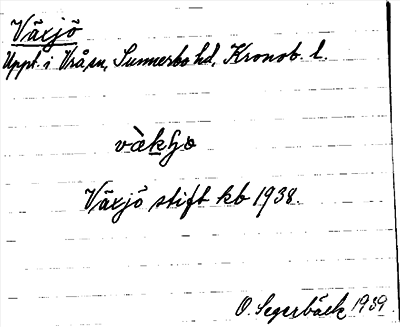 Växjö
Uppt. i Vrå sn, Sunnerbo hd, Kronob. l.
Växjö stift kb 1938.
O. Segerbäck 1939